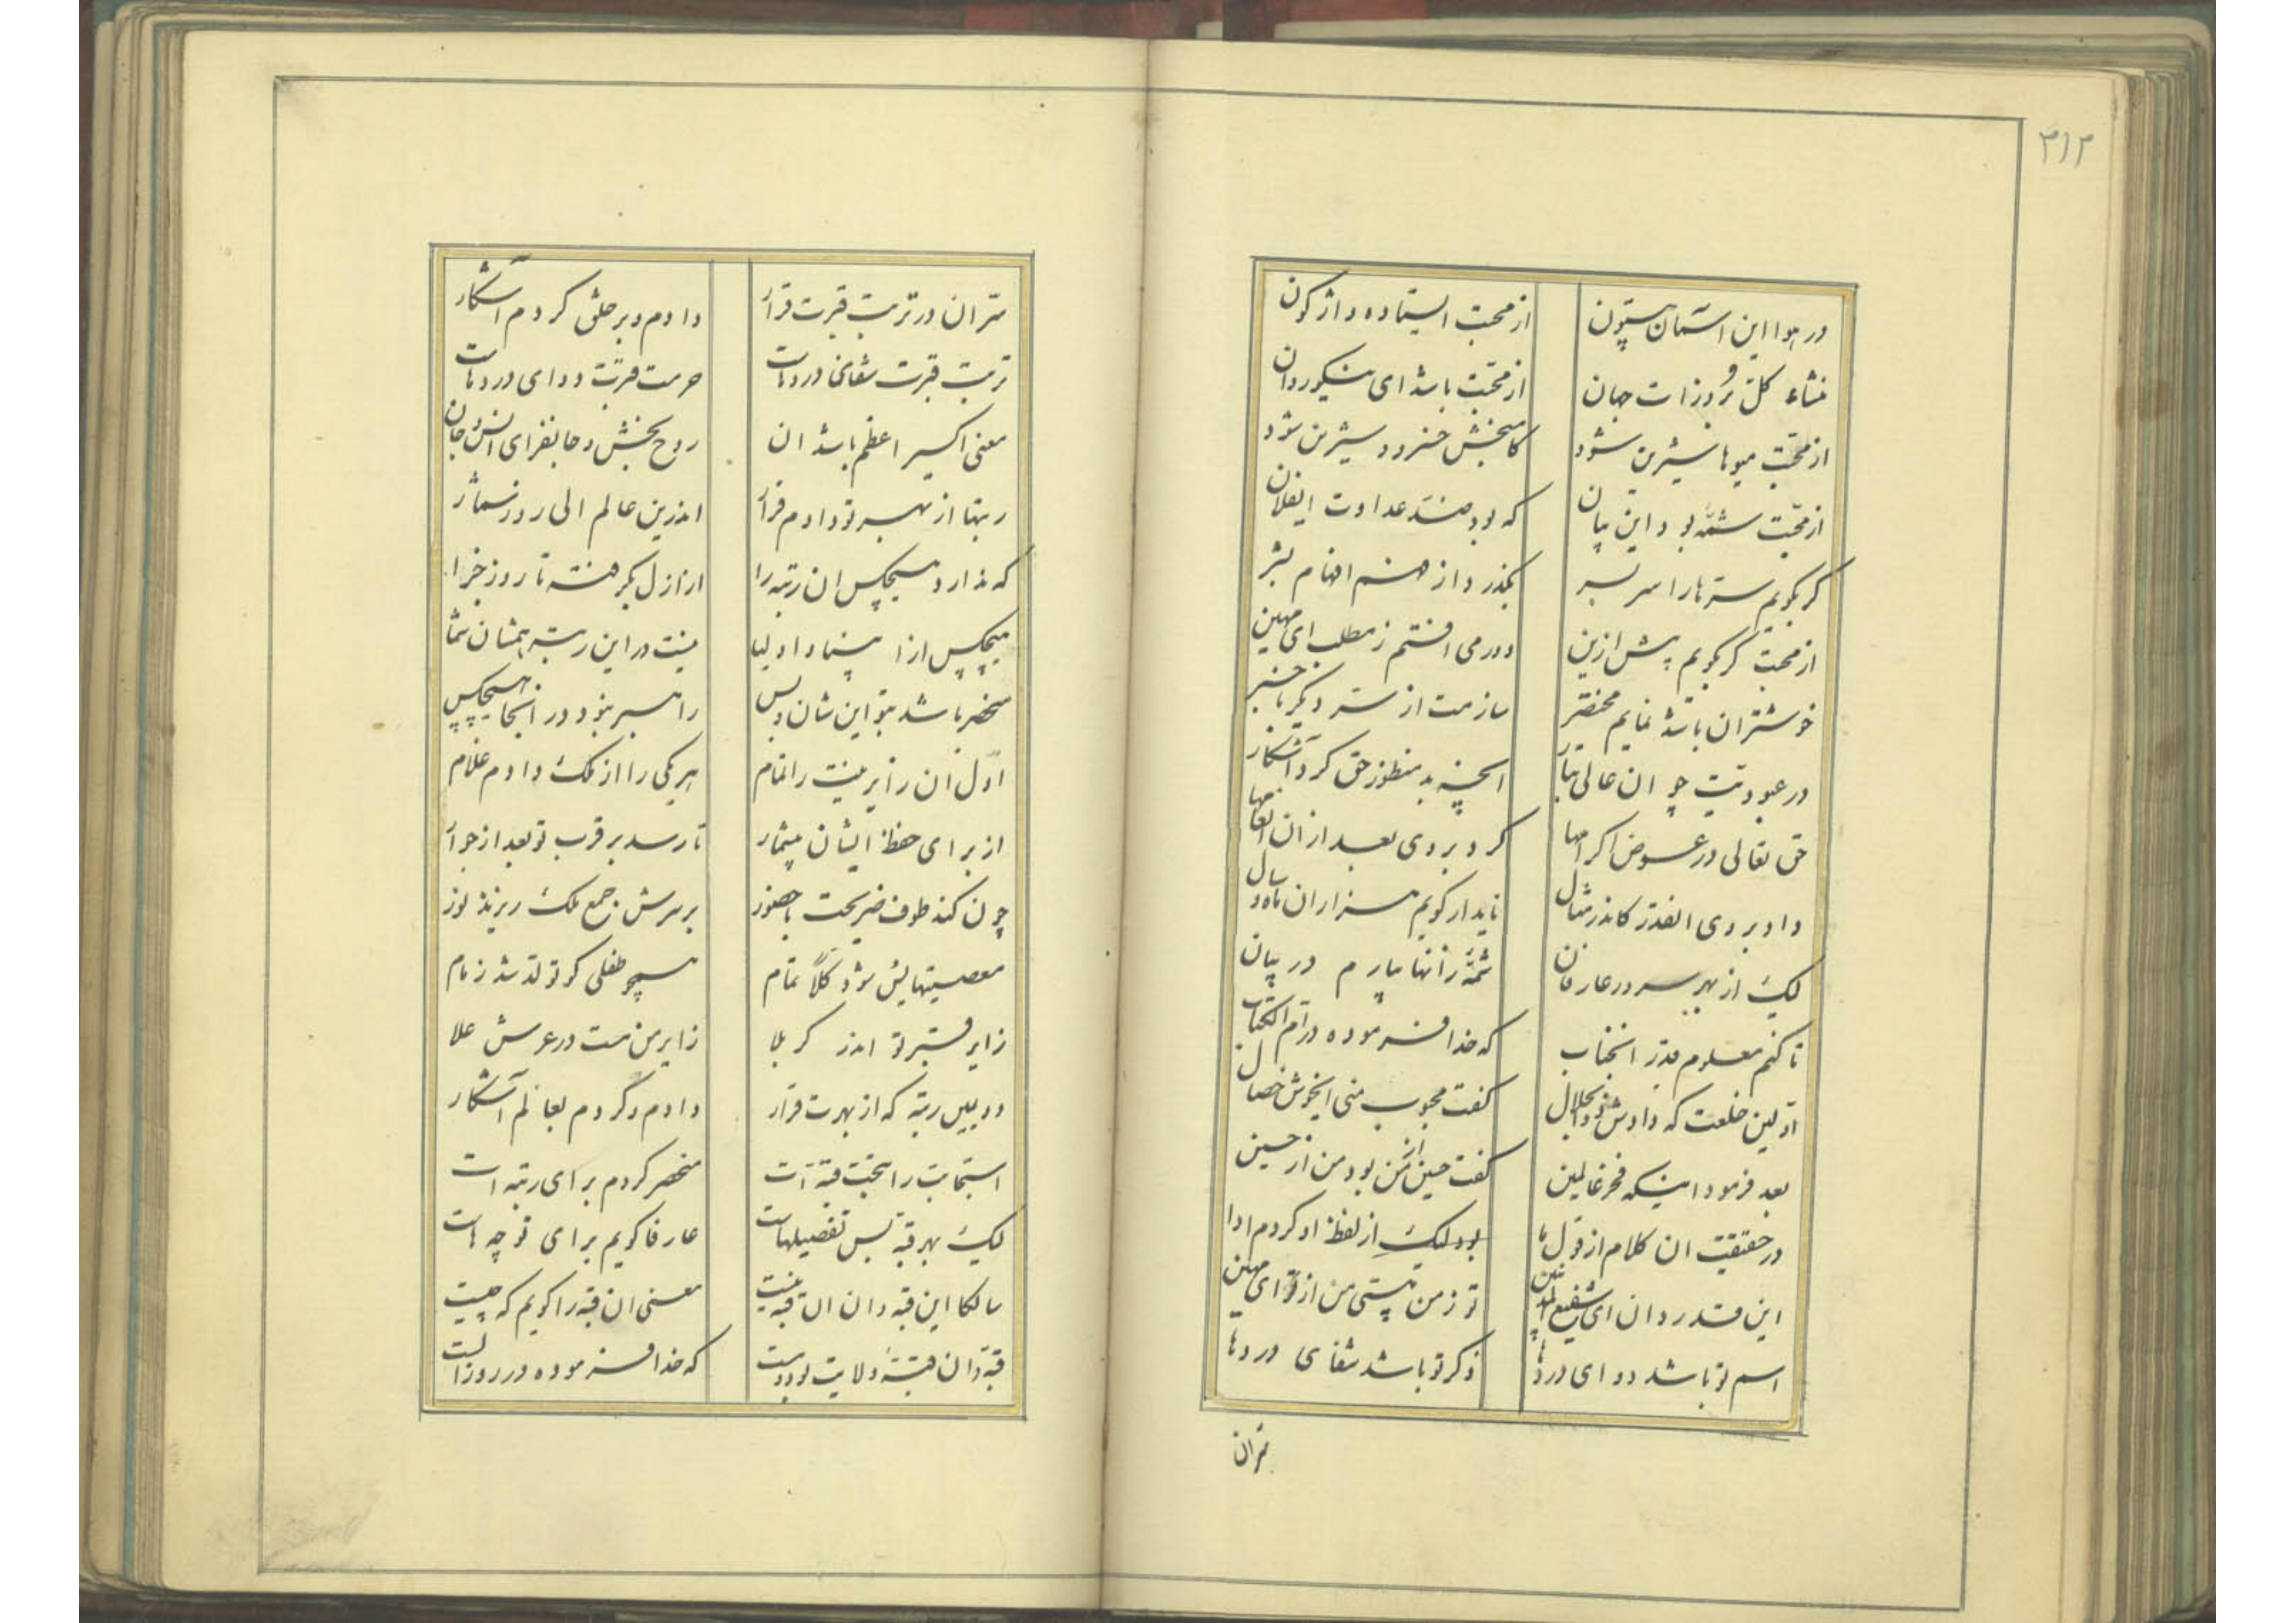 ۳۱۲
در هوا این آسمان بیستون از محبت ایستاده واژگون
منشاء کل بروزات جهان از محبت باشد ای نیکوروان
از محبت میوها شیرین شود کامبخش خسرو و شیرین شود
از محبت شمهٔ بود این بیان که بود ضد عداوت ایفلان
گر بگویم سترها را سر بسر بگذرد از فهم افهام بشر
از محبت گر بگویم پیش ازین دور می افتم ز مطلب ای مهین
خوشتر ان باشد نمایم مختصر سازمت از ستر دیگر باخبر
در عبودیت چو ان عالی تبار انچه بد منظور حق کرد آشکار
حق تعالی در عوض اکرامها کرد بر وی بعد از ان انعامها
داد بر وی انقدر کاندر مثال ناید ار گویم هزاران ماه و سال
لیک از بهر سرور عارفان شمهٔ زانها بیارم در بیان
تا کنم معلوم قدر انجناب که خدا فرموده در ام الکتاب
اولین خلعت که دادش ذوالجلال گفت محبوب منی ایخوش خصال
بعد فرمود اینکه فخر عالمین گفت حسین از من بود من از حسین
در حقیقت ان کلام از قول ما بود لیک از لفظ او کردم ادا
این قدر دان ای شفیع المذنبین تو ز من هستی من از تو ای مهین
اسم تو باشد دوای دردها ذکر تو باشد شفای دردها
سر ان در تربت قبرت قرار دادم و بر خلق کردم آشکار
تربت قبرت شفای دردهاست حرمت قربت دوای دردهاست
معنی اکسیر اعظم باشد ان روح بخش و جانفزای انس و جان
ربتها از بهر تو دادم قرار اندرین عالم الی روز شمار
که ندارد هیچکس ان رتبه را از ازل بگرفته تا روز جزا
هیچکس از انبیاء و اولیا نیست در این رتبه همشان شما
منحصر باشد بتو این شان و بس راهبر نبود در انجا هیچکس
اول ان زایرینت را تمام هر یکی را از ملک دادم غلام
از برای حفظ ایشان بیشمار تا رسد بر قرب تو بعد از جوار
چون کند طوف ضریحت با حضور بر سرش جمع ملک ریزند نور
معصیتهایش شود کلاً تمام همچو طفلی کو تولد شد ز مام
زایر قبر تو اندر کربلا زایر من هست در عرش علا
دویمین رتبه که از بهرت قرار دادم و کردم بعالم آشکار
استجابت را بتحت قبه ات منحصر کردم برای رتبه ات
لیک بهر قبه بس تفصیلهاست عارفا گویم برای تو چه هاست
سالکا این قبه دان ان قبه نیست معنی ان قبه را گویم که چیست
قبه دان قبهٔ ولایت بوده است که خدا فرموده در روز الست